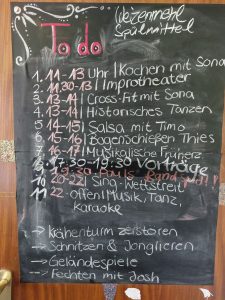 To do
Weizenmehl
Spülmittel
1. 11-13 Uhr | Kochen mit Sona
2. 11.30-13 | Improtheater
3. 13-14 | Cross-Fit mit Sona
4. 13-14 | Historisches Tanzen
5. 14-15 | Salsa mit Timo
6. 15-16 | Bogenschießen Thies
7. 16-17 | Musikalische Früherz.
8. 17:30-19:30 Vorträge
9. 19:30
10 20-22 | Sing-Wettstreit
11 22-offen | Musik, Tanz,
Karaoke
--> Krähenturm zerstören
--> Schnitzen & Jonglieren
--> Geländespiele
--> Fechten mit Josh